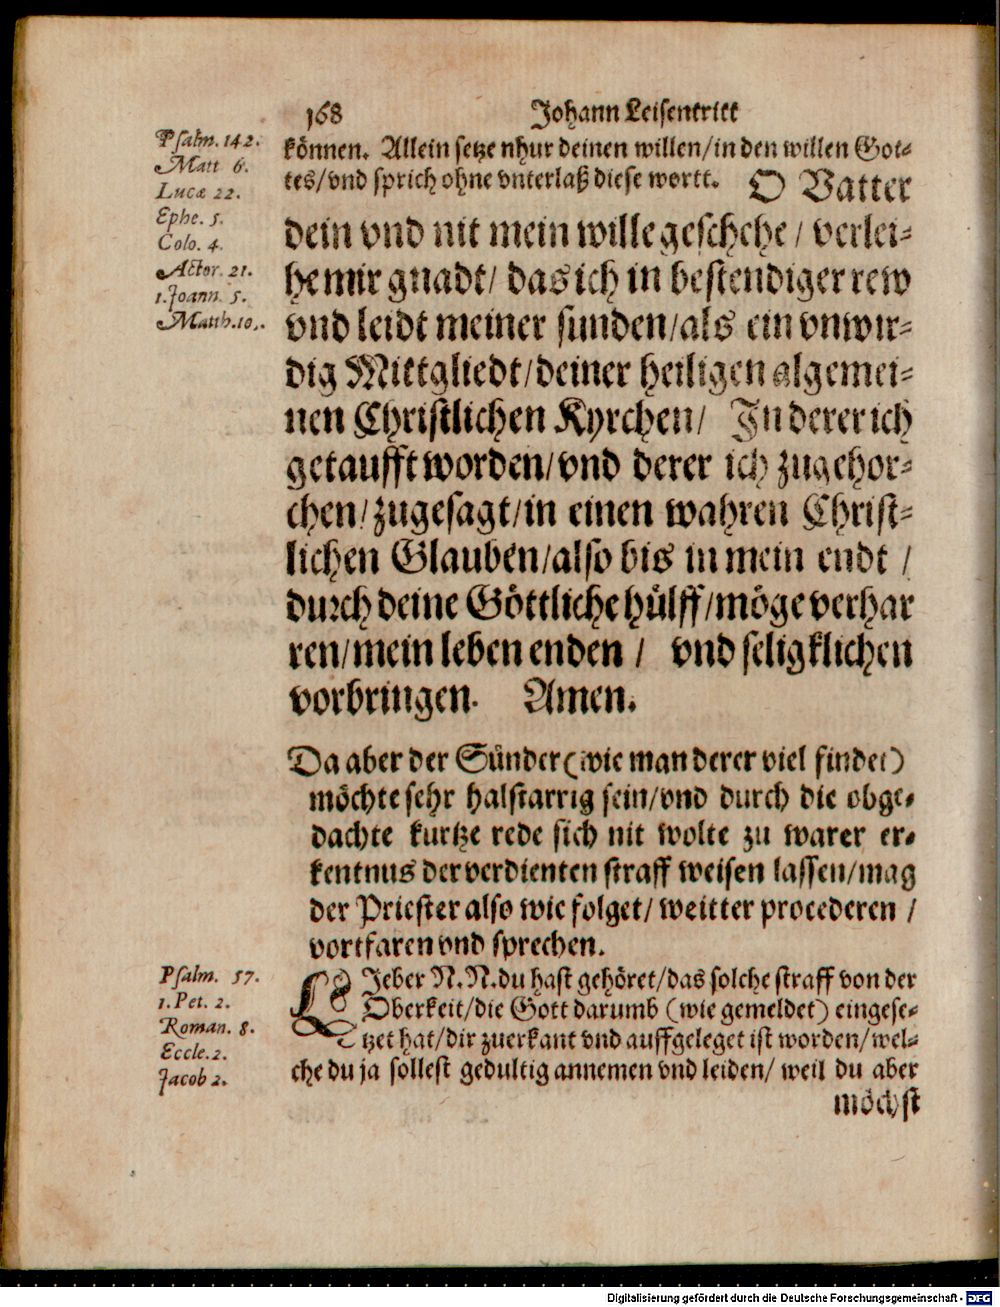 168 Johann Leisentritt
Psalm. 142.
Matt 6.
Lucæ 22.
Ephe. 5.
Colo. 4.
Actor. 21.
1. Joann. 5.
Matth. 10.
können. Allein setze nhur deinen willen/in den willen Got-
tes/vnd sprich ohne vnterlaß diese wortt. O Vatter
dein vnd nit mein wille geschehe / verlei-
he mir gnadt/ das ich in bestendiger rew
vnd leidt meiner sunden/als ein vnwir-
dig Mittgliedt/deiner heiligen algemei-
nen Christlichen Kyrchen/ In derer ich
getaufft worden/vnd derer ich zugehor-
chen/zugesagt/in einen wahren Christ-
lichen Glauben/also bis in mein endt /
durch deine Göttliche hülff/möge verhar
ren/mein leben enden / vnd seligklichen
vorbringen. Amen.
Da aber der Sünder (wie man derer viel findet)
möchte sehr halstarrig sein/vnd durch die obge-
dachte kurtze rede sich nit wolte zu warer er-
kentnus der verdienten straff weisen lassen/mag
der Priester also wie folget/ weitter procederen /
vortfaren vnd sprechen.
Psalm. 57.
1. Pet. 2.
Roman. 8.
Eccle. 2.
Jacob 2.
LJeber N. N. du hast gehöret/das solche straff von der
Oberkeit/die Gott darumb (wie gemeldet) eingese-
tzet hat/dir zuerkant vnd auffgeleget ist worden/wel-
che du ja sollest gedultig annemen vnd leiden/ weil du aber
möchst
Digitalisierung gefördert durch die Deutsche Forschungsgemeinschaft - DFG